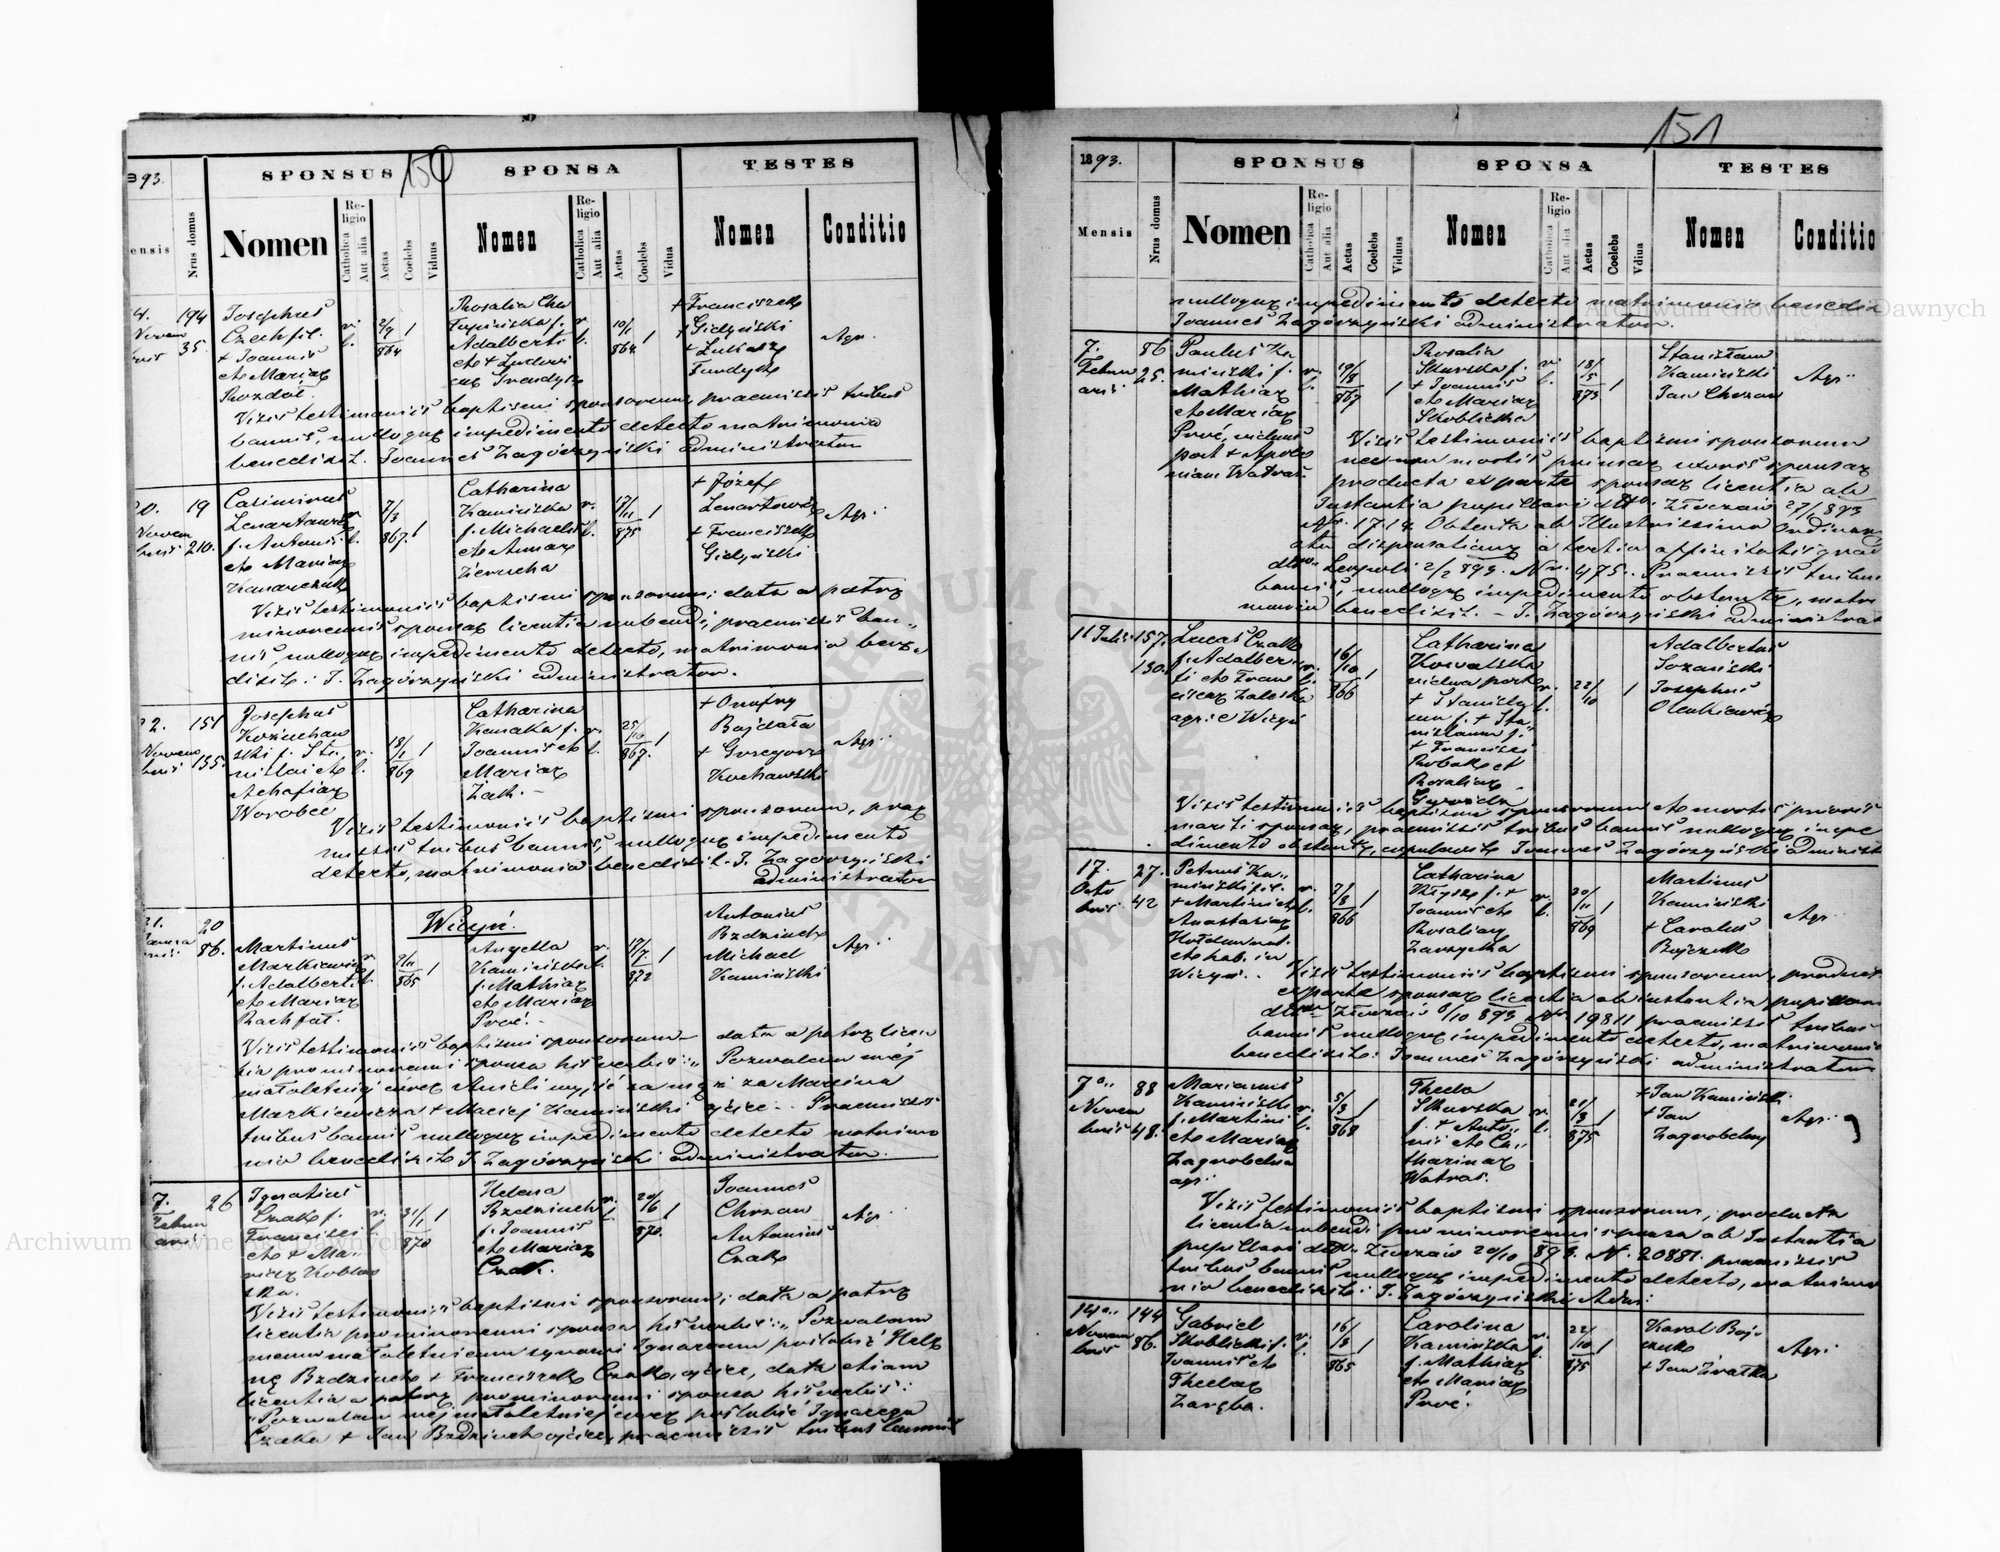 150
93.
SPONSUS
SPONSA
TESTES
ensis
Nrus domus
Nomen
Religio
Catholica
Aut alia
Aetas
Coelebs
Viduus
Nomen
Religio
Catholica
Aut alia
Aetas
Coelebs
Vidua
Nomen
Conditio
4. 194
35.
Josephus
Czech fil.
+ Joannis
et Mariae
Rozdół
r. l.
2/9
864
1
Rosalia
f.
Adalberti
et + Ludovi
cae
r. l.
10/1
864
1
+ Franciszek
+ Gidyński
+ Łukasz
Furdyk
Agr.
Visis testimoniis baptismi sponsorum, praemissis tribus
bannis, nulloque impedimento detecto matrimonio
benedixit. Joannes Zagórzyński administrator
20. 19
Novem
bris 210.
Casimirus
Lenartowicz
f. Antonii
et Mariae
r. l.
7/3
867.
1
Catharina
Kamińska
f. Michaelis
et Annae
r. l.
17/11
875
1
+ Józef
Lenartowicz
+ Franciszek
Gidyński
Agr.
Visis testimoniis baptismi sponsorum, data a patre
minorennis sponsae licentia nubendi, praemissis ban„
nis, nulloque impedimento detecto, matrimonio bene„
dixit: J. Zagórzyński administrator.
22. 151
Novem
bris 135.
Josephus
f. Sta
nislai et
Worobec
r. l.
18/1
869
1
Catharina
f.
Joannis et
Mariae
Żak.
r. l.
25/10
867.
1
+ Onufry
Bojdała
+ Grzegorz
Kochawski
Agr.
Visis testimoniis baptismi sponsorum, prae
missis tribus bannis, nulloque impedimento
detecto, matrimonio benedixit. J. Zagórzyński
administrator
Wicyń.
31. 20
86.
Martinus
Markiewicz
f. Adalberti
et Mariae
Rachfał.
r. l.
9/11
865
1
Angella
Kamińska
f. Mathiae
et Mariae
Prvé.
r. l.
17/7.
872
1
Antonius
Bzdziuch
Michael
Kamiński
Agr.
Visis testimoniis baptismi sponsorum data a patre licen
tia pro minorenni sponsa his verbis: „Pozwalam mej
małoletniej córce Anieli wyjść za mąż za Marcina
Markiewicza + Maciej Kamiński ojciec. Praemissis
tribus bannis nulloque impedimento detecto matrimo
nio benedixit J. Zagórzyński administrator.
7. 26
Februarii
Ignatius
Czak f.
Francisci
et + Ma„
riae
r. l.
31/1
870
1
Helena
Bzdziuch
f. Joannis
et Mariae
Czak.
r. l.
20/6
870.
1
Joannes
Chrzan
Antonius
Czak
Agr.
Visis testimoniis baptismi sponsorum; data a patre
licentia pro minorenni sponso his verbis: „Pozwalam
memu małoletniemu synowi Ignacemu poślubić Hele
nę Bzdziuch + Franciszek Czak, ojciec, data etiam
licentia a patre pro minorenni sponsa his verbis:
„Pozwalam mej małoletniej córce poślubić Ignacego
Czaka + Jan Bzdziuch ojciec, praemissis tribus bannis
151
1893.
SPONSUS
SPONSA
TESTES
Mensis
Nrus domus
Nomen
Religio
Catholica
Aut alia
Aetas
Coelebs
Viduus
Nomen
Religio
Catholica
Aut alia
Aetas
Coelebs
Vdiua
Nomen
Conditio
nulloque impedimento detecto matrimonio benedix
Joannes Zagórzyński administrator.
7. 86
Februarii 25.
Paulus Ka
miński f.
Mathiae
et Mariae
Prvé, viduus
post + Apolo
niam Watraś.
r. l.
19/8
867
1
Rosalia
Skurska f.
+ Joannis
et Mariae
Skoblicka
r. l.
18/5
873
1
Stanisław
Kamiński
Jan Chrzan
Agr.
Visis testimoniis baptismi sponsorum
nec non mortis primae uxoris sponsi,
producta ex parte sponsae licentia ab
Instantia pupillari dtto. Złoczów 27/1 893
Nr. 1714. Obtenta ab Illustrissimo Ordinari
atu dispensatione a tertio affinitatis grad
dtto. Leopoli 2/2 893. Nr. 475. Praemissis tribus
bannis, nulloque impedimento obstante, matri
monio benedixit. – J. Zagórzyński administrat
11 Julii 157.
130.
Lucas Czak
f. Adalber
ti et Fran
ciscae Zaleska
agr. e Wicyń
r. l.
16/10
866
1
Catharina
Kowalska
vidua post
+ Stanislao
f. + Sta„
nislaum f.
+ Francisci
Robak et
Rosaliae
r. l.
22/10
1
Adalbertus
Sozański
Josephus
Olenkiewicz
Visis testimoniis baptismi sponsorum et mortis prioris
mariti sponsae, praemissis tribus bannis nulloque impe
dimento obstante, copulavit Joannes Zagórzyński administ
17. 27.
Octo
bris 42
Petrus Ka„
miński fil.
+ Martini et
Anastasiae
et hab. in
Wicyń.
r. l.
7/8
866
1
Catharina
f. +
Joannis et
Rosaliae
Zarzycka
r. l.
20/11
869
1
Martinus
Kamiński
+ Carolus
Bojczuk
Agr.
Visis testimoniis baptismi sponsorum, product.
ex parte sponsae licentia ab instantia pupillari
dtto Złoczów 6/10 893 Nr. 19811 praemissis tribus
bannis nulloque impedimento detecto, matrimonio
benedixit: Joannes Zagórzyński administrator
7a„ 88
Novem
bris 48.
Marianus
Kamiński
f. Martini
et Mariae
Zagrobelna
agr.
r. l.
5/3
868
1
Thecla
Skurska
f. + Anto„
nii et Ca„
tharinae
Watraś.
r. l.
21/3
875
1
+ Jan Kamiński
+ Jan
Zagrobelny
Agr.
Visis testimoniis baptismi sponsorum, producta
licentia nubendi pro minorenni sponsa ab Instantia
pupillari dtto. Złoczów 20/10 893. N. 20881. praemissis
tribus bannis nulloque impedimento detecto, matrimo
nio benedixit: J. Zagórzyński Adm:
14a„ 144
Novem
bris 86.
Gabriel
Skoblicki f.
Joannis et
Theclae
Zaręba.
r. l.
16/3
865
1
Carolina
Kamińska
f. Mathiae
et Mariae
Prvé.
r. l.
22/10
875
1
Karol Boj„
czuk
+ Jan Żratka
Agr.
Archiwum Główne Akt Dawnych
Archiwum Główne Akt Dawnych
ARCHIWUM GŁÓWNE AKT DAWNYCH